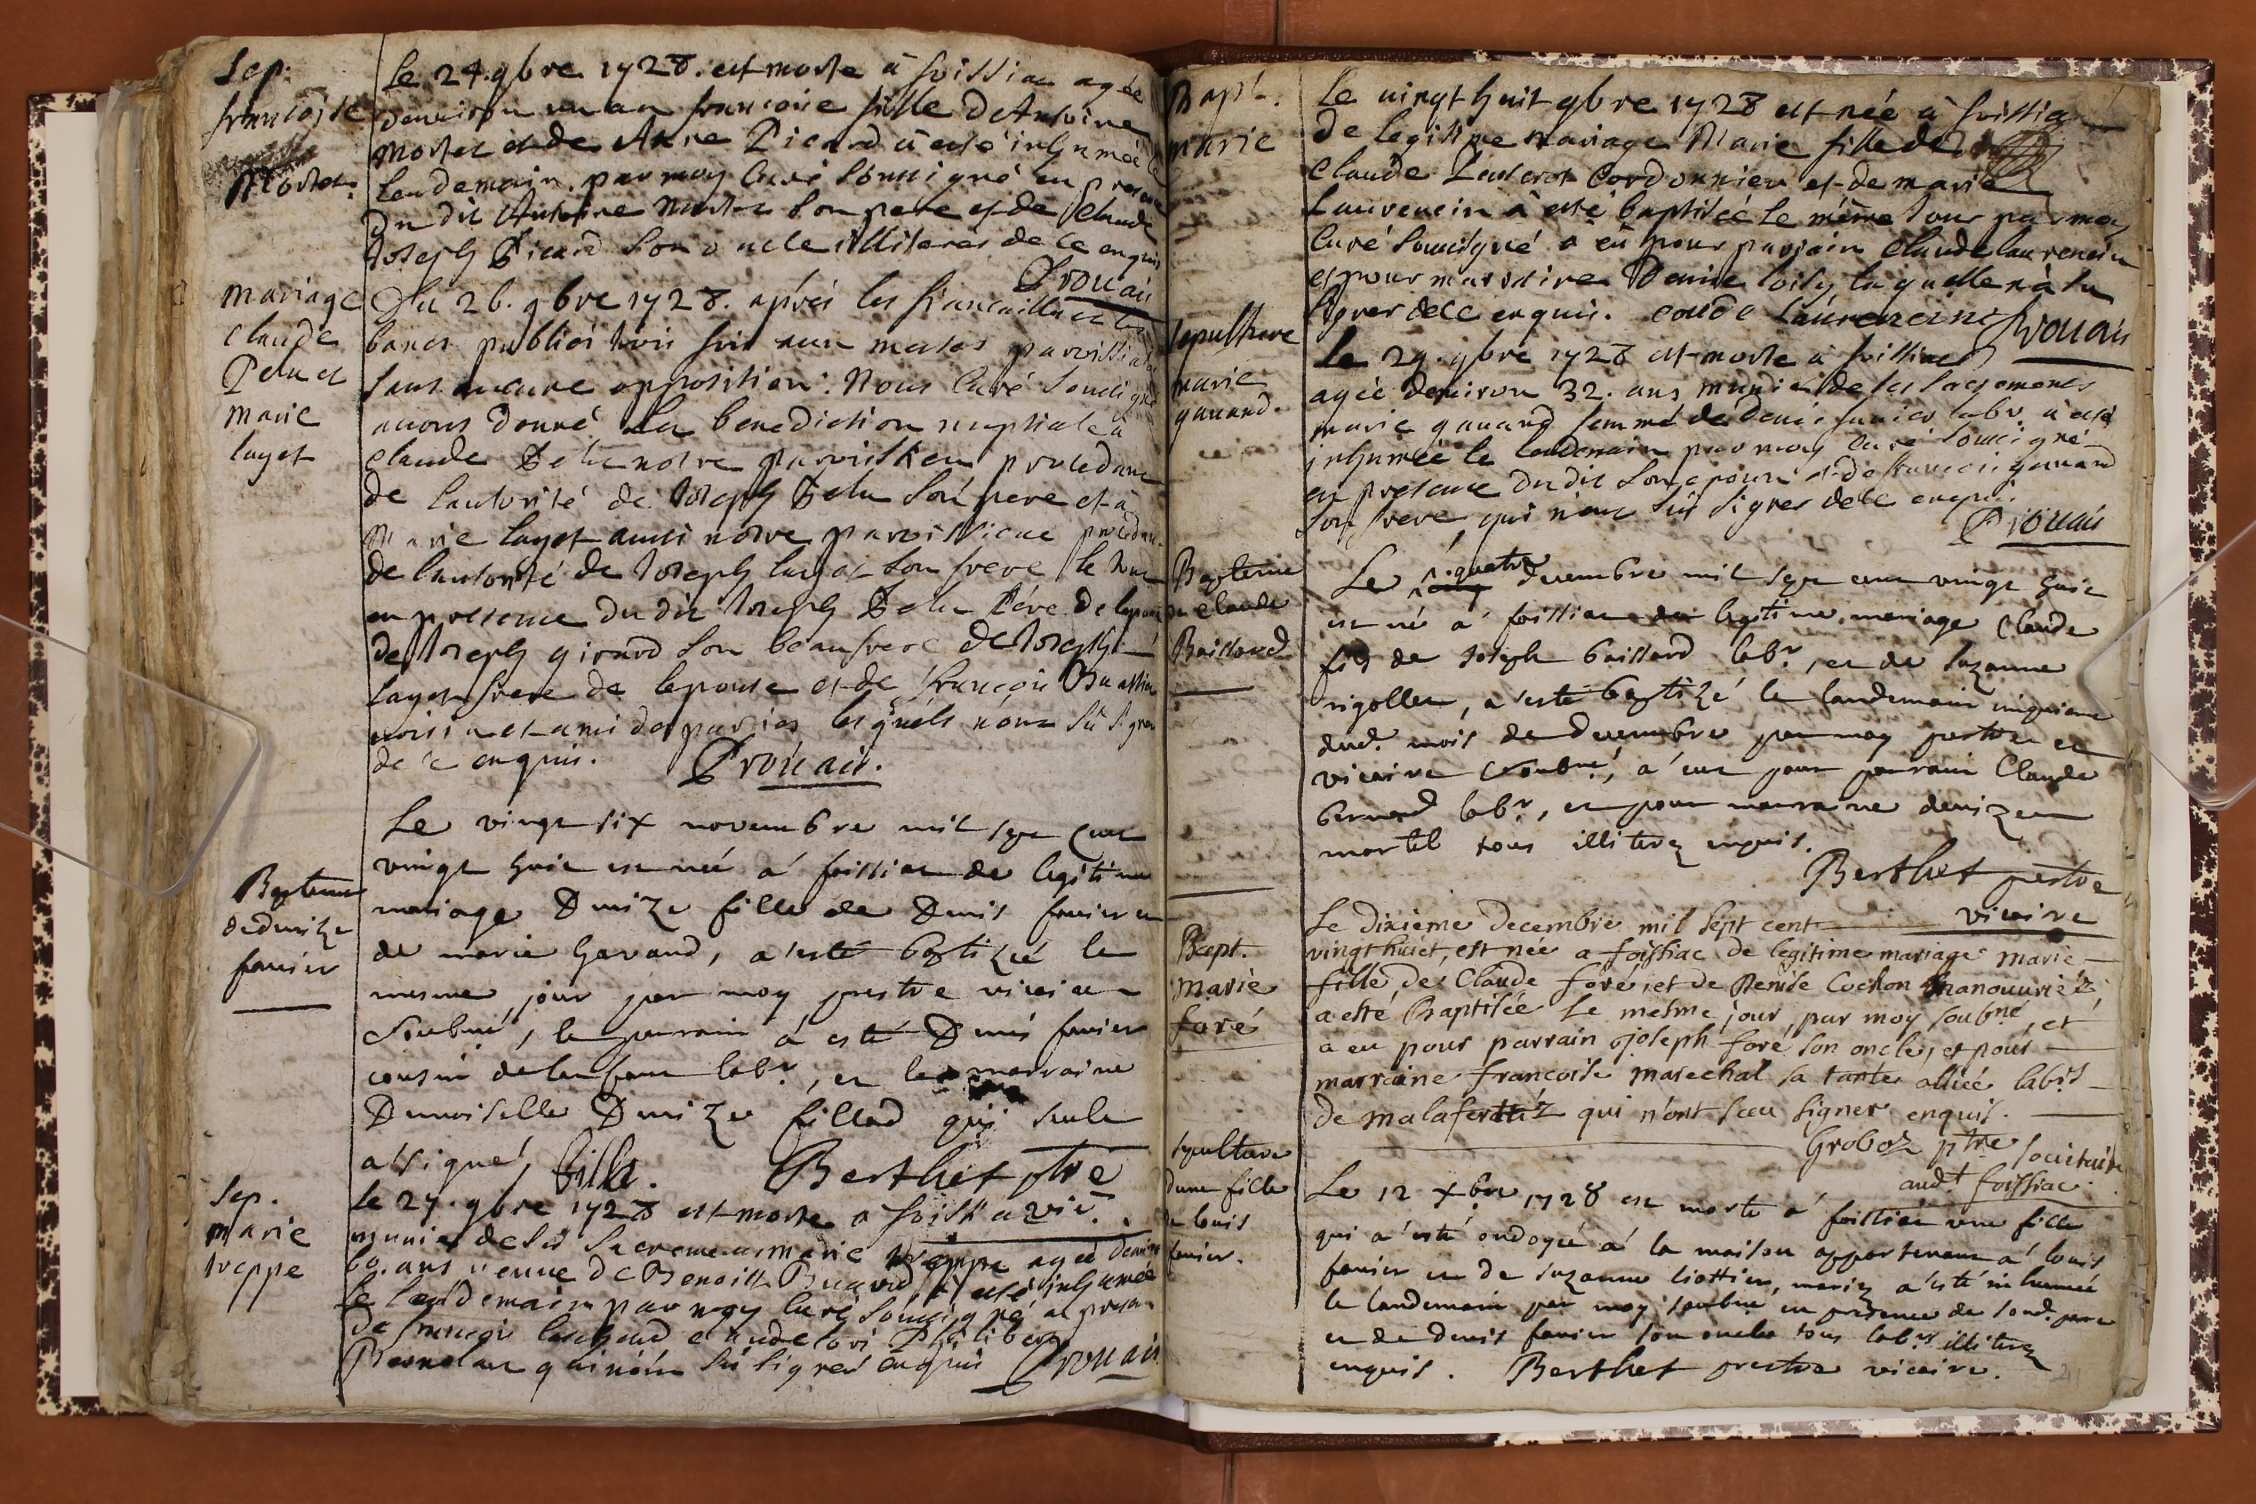 Sep.
francoise
Morter.
Le 24. 9bre 1728. est morte à foissiac agée
denviron un an francoise fille d'Antoine
Morter et de Anne Picard à esté inhumée le
lendemain par moy Curé soussigné en presence
du dit Antoine Morter son pere et de Claude
Joseph Picard son oncle illiterés de ce enquis
Drouais
Mariage
claude
Pelu et
marie
layet
Du 26. 9bre 1728. aprés les fiancailles et les
bancs publiés trois fois aux messes paroissiales
sans aucune opposition. Nous Curé soussigné
avons donné la benediction nuptiale à
claude Pelu notre paroissien procedant
de lautorité de Joseph Pelu son pere et à
Marie layet aussi notre paroissiene procedant
de lautorité de Joseph layet son frere le tout
en presence du dit Joseph Pelu Pére de lepoux
de Joseph girard son beaufrere de Joseph
layet frere de lepouse et de françois
voisin et ami des parties lesquels n'ont sû signer
de ce enquis. Drouais.
Bapteme
de denize
favier
Le vingt six novembre mil sept cent
vingt huit est née á foissiac de legitime
mariage Denize fille de Denis favier et
de marie Gavand, a esté baptizée le
mesme jour par moy prestre vicaire
soubné, le parrain á esté Denis favier
cousin de lenfant labr, et la marraine
Demoiselle Denize fillod qui seule
a signé, fillod. Berthet ptre
vic.
Sep.
marie
treppe
le 27. 9bre 1728 est morte a foissia
munie de ses sacremens marie treppe agée denviron
60. ans veuve de Benoist Buavod, à esté inhumée
le lendemain par moy curé soussigné en presence
de francois claude Philibert
qui n'ont sû signer enquis Drouais
Bapt.
marie
Le vingt huit 9bre 1728 est née à foissia
de legitime mariage Marie fille de
Claude Lacroix Cordonnier et de marie
Laurencin à esté baptisée le même jour par moy
Curé soussigné a eû pour parrain claude laurencin
et pour marraine Denise loisy laquelle n'à su
signer de ce enquis. Laurencin Drouais
sepulture
marie
gavand.
le 29. 9bre 1728 est morte à foissiac
agée denviron 32. ans munie de ses sacremens
marie gavand femme de denis favier labr. à esté
inhumée le lendemain par moy curé soussigné
en presence du dit son epoux et de francois gavand
son frere qui n'ont sû signer de ce enquis.
Drouais
Bapteme
de Claude
Baillard
Le quatre
cinq decembre mil sept cent vingt huit
est né a' foissiac de legitime mariage Claude
fils de Joseph baillard labr, et de suzanne
rigollet, a esté baptizé le landemain cinquieme
dud. mois de decembre par moy prestre et
vicaire soubné, a' eut pour parrain Claude
bernard labr, et pour marraine denize
martel tous illiterez enquis.
Berthet prestre
vicaire
Bapt.
Marie
foré
Le dixieme decembre mil sept cent
vingt huict, est née a foissiac de legitime mariage marie
fille de Claude foré, et de Denise Cochon manouvriéz
a esté Baptisée le mesme jour, par moy soubné, et
a eu pour parrain joseph foré son oncle, et pour
marraine francoise marechal sa tante alliée labrs
de malafertéz qui n'ont sceu signer enquis.
Groboz ptre societaire
audt foissiac.
sepulture
dune fille
de louis
favier.
Le 12 xbre 1728 est morte a' foissiac une fille
qui a'esté ondoyée a' la maison appartenant a' louis
favier et de suzanne liottier, mariez a'esté inhumée
le landemain par moy soubné en presence de sond. pere
et de denis favier son oncle tous labrs illiterez
enquis. Berthet prestre vicaire.